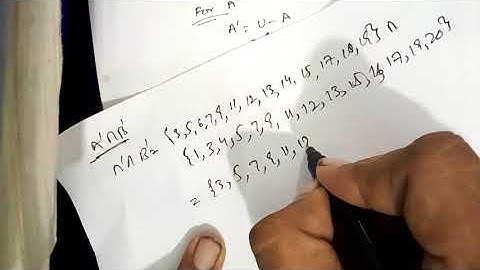 For A
A' = U - A
A'∩B'
A'∩B' = {3,5,6,7,9,11,12,13,14,15,17,18,19} ∩
{1,3,4,5,7,9,11,12,13,15,16,17,19,20}
= {3,5,7,9,11,12